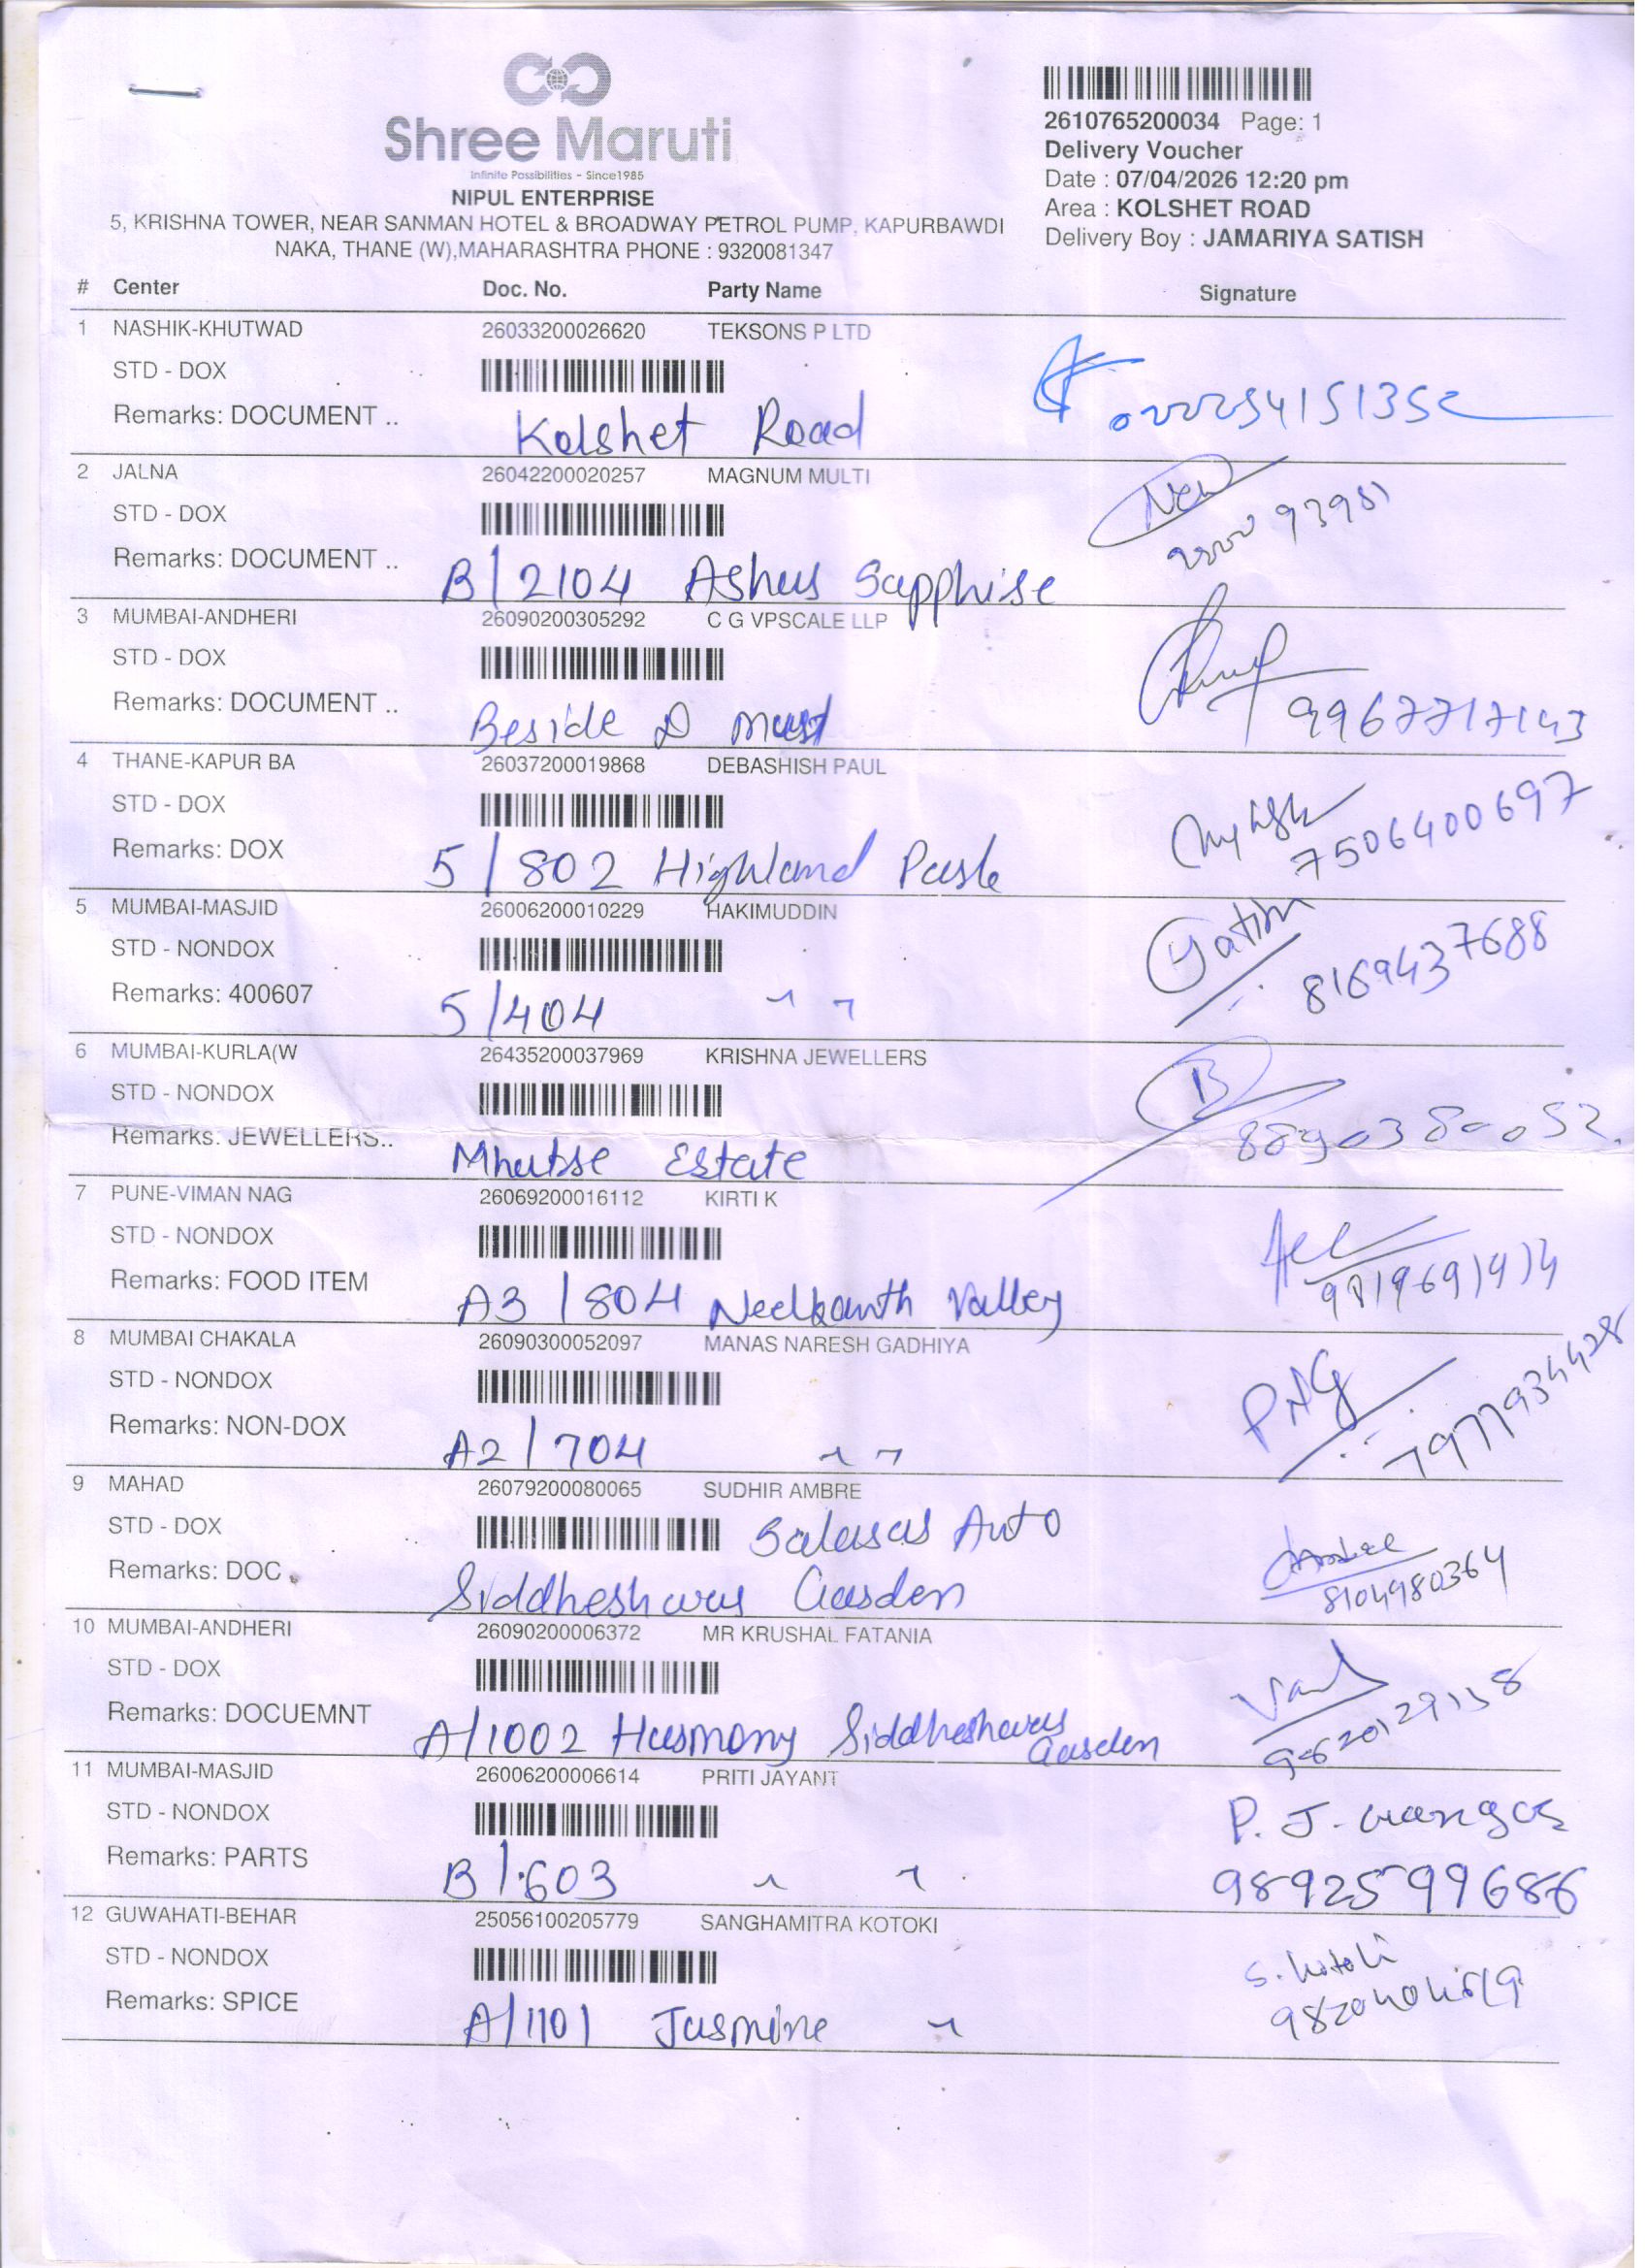 Shree Maruti
Infinite Possibilities - Since1985
NIPUL ENTERPRISE
5, KRISHNA TOWER, NEAR SANMAN HOTEL & BROADWAY PETROL PUMP, KAPURBAWDI
NAKA, THANE (W),MAHARASHTRA PHONE : 9320081347
2610765200034 Page: 1
Delivery Voucher
Date : 07/04/2026 12:20 pm
Area : KOLSHET ROAD
Delivery Boy : JAMARIYA SATISH
# Center Doc. No. Party Name Signature
1 NASHIK-KHUTWAD 26033200026620 TEKSONS P LTD
STD - DOX
Remarks: DOCUMENT ..
Kolshet Road
2 JALNA 26042200020257 MAGNUM MULTI
STD - DOX
Remarks: DOCUMENT ..
B/2104
3 MUMBAI-ANDHERI 26090200305292 C G VPSCALE LLP
STD - DOX
Remarks: DOCUMENT ..
Beside D mart
9967717143
4 THANE-KAPUR BA 26037200019868 DEBASHISH PAUL
STD - DOX
Remarks: DOX
5/802 Highland Park
7506400697
5 MUMBAI-MASJID 26006200010229 HAKIMUDDIN
STD - NONDOX
Remarks: 400607
5/404
Yatin
8169437688
6 MUMBAI-KURLA(W 26435200037969 KRISHNA JEWELLERS
STD - NONDOX
Remarks: JEWELLERS..
Estate
B
8890380052
7 PUNE-VIMAN NAG 26069200016112 KIRTI K
STD - NONDOX
Remarks: FOOD ITEM
A3/804 Neelkanth Valley
8 MUMBAI CHAKALA 26090300052097 MANAS NARESH GADHIYA
STD - NONDOX
Remarks: NON-DOX
A2/704
PNG
7977934428
9 MAHAD 26079200080065 SUDHIR AMBRE
STD - DOX
Auto
Remarks: DOC .
Siddheshwar Garden
8104980364
10 MUMBAI-ANDHERI 26090200006372 MR KRUSHAL FATANIA
STD - DOX
Remarks: DOCUEMNT
A/1002 Harmony Siddheshwar
Garden
11 MUMBAI-MASJID 26006200006614 PRITI JAYANT
STD - NONDOX
Remarks: PARTS
B/603
P. J.
9892599686
12 GUWAHATI-BEHAR 25056100205779 SANGHAMITRA KOTOKI
STD - NONDOX
Remarks: SPICE
A/1101 Jasmine
S. Kotoki